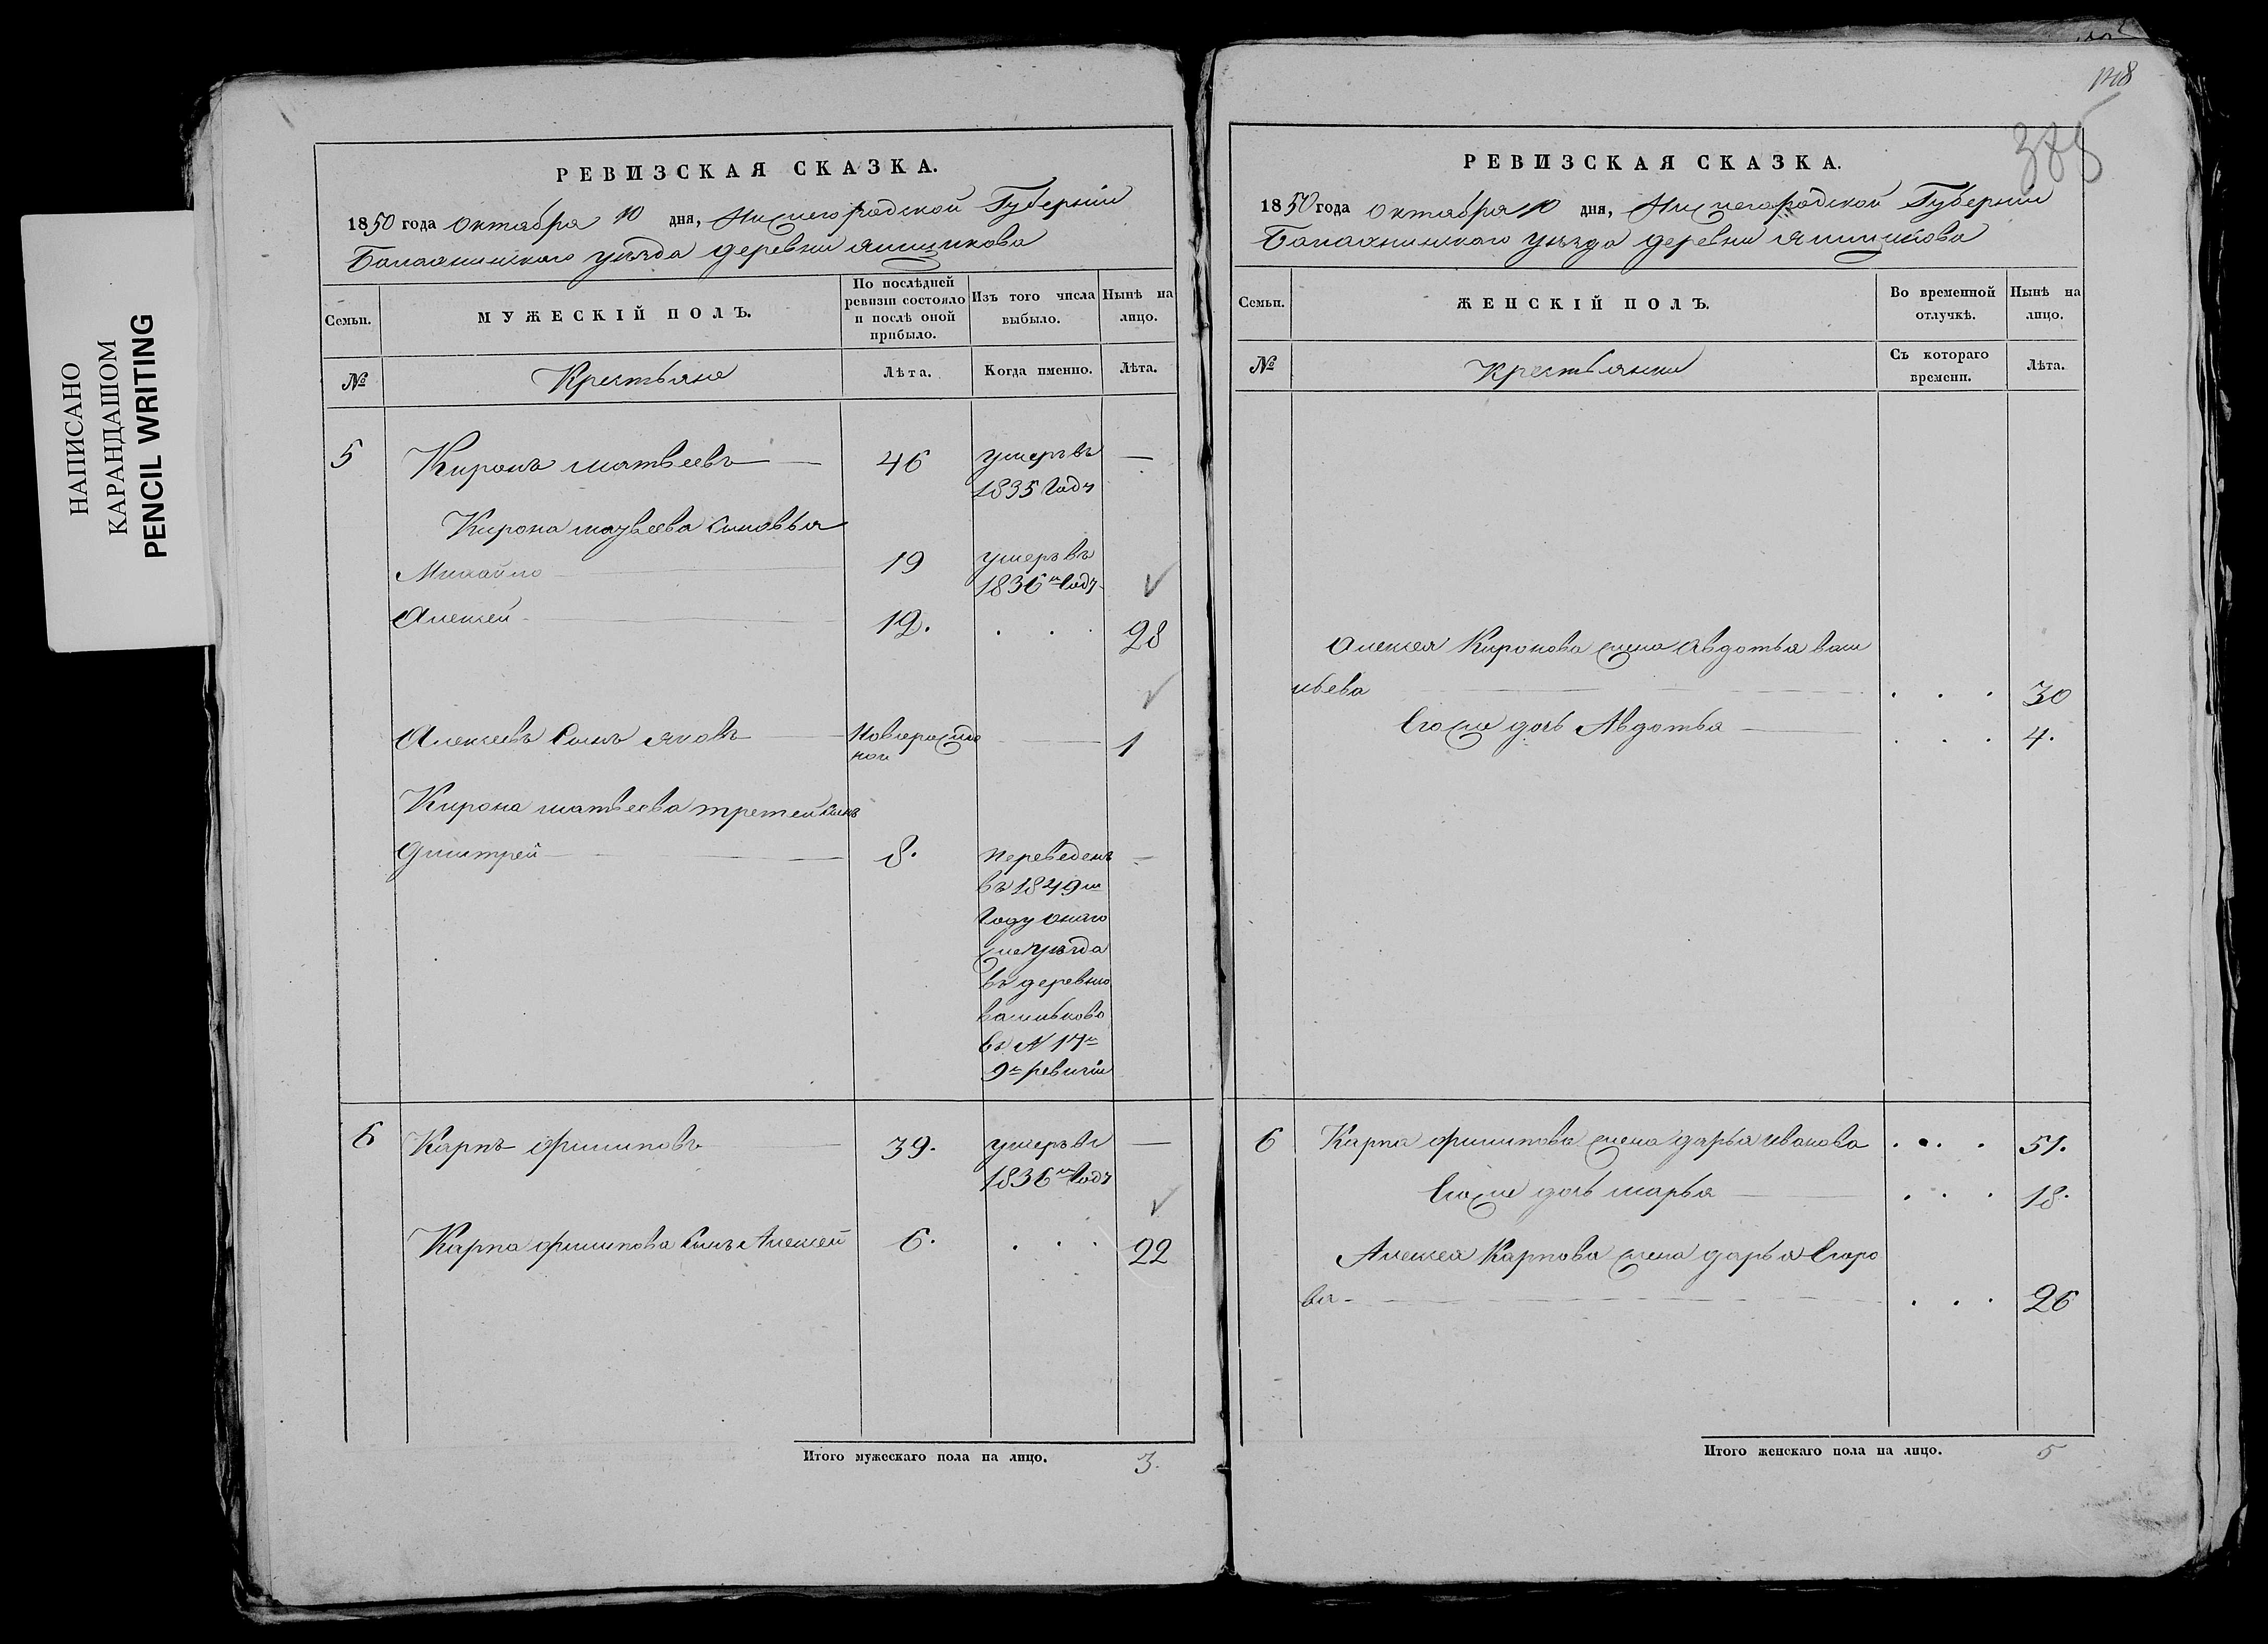 НАПИСАНО
КАРАНДАШОМ
PENCIL WRITING
РЕВИЗСКАЯ СКАЗКА.
1850 года Октября 10 дня, Нижегородской Губерніи
Балахнинскаго уѣзда деревни
Семьи.
МУЖЕСКІЙ ПОЛЪ.
По послѣдней ревизіи состояло и послѣ оной прибыло.
Изъ того числа выбыло.
Нынѣ на лицо.
№
Крестьяне
Лѣта.
Когда именно.
Лѣта.
5 Киронъ Матвеевъ 46 умеръ въ —
1835 Году
Кирона Матвеева Сыновья
Михайло 19 умеръ въ
1836м Году
Алексей 12. . . . 28
Алексеевъ Сынъ Яковъ Новорожде 1
ной
Кирона Матвеева третей Сынъ
Дмитрей 8. переведенъ —
въ 1849м
Году онаго
же уѣзда
въ деревню
Васильково
въ № 17й
9й ревизіи
6 Карпъ Филиповъ 39. умеръ въ —
1836м Году
Карпа Филипова Сынъ Алексей 6. . . . 22
Итого мужескаго пола на лицо. 3.
385
РЕВИЗСКАЯ СКАЗКА.
1850 года Октября 10 дня, Нижегородской Губерніи
Балахнинскаго уѣзда деревни
Семьи.
ЖЕНСКІЙ ПОЛЪ.
Во временной отлучкѣ.
Нынѣ на лицо.
№
Крестьянки
Съ котораго времени.
Лѣта.
Алексея Киронова жена Авдотья Васи
льева . . . 30
Егоже дочь Авдотья . . . 4.
6 Карпа Филипова жена Дарья Иванова . . . 51.
Егоже дочь Марья . . . 18.
Алексея Карпова жена Дарья Егоро
ва . . . 26
Итого женскаго пола на лицо. 5